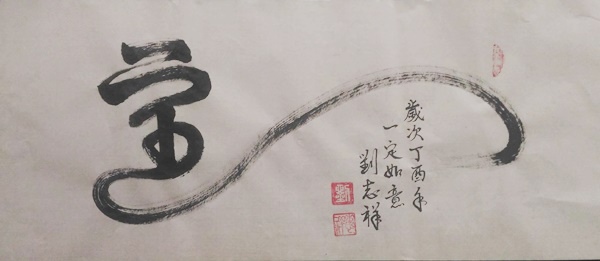 歲次丁酉年
一定如意
劉志祥